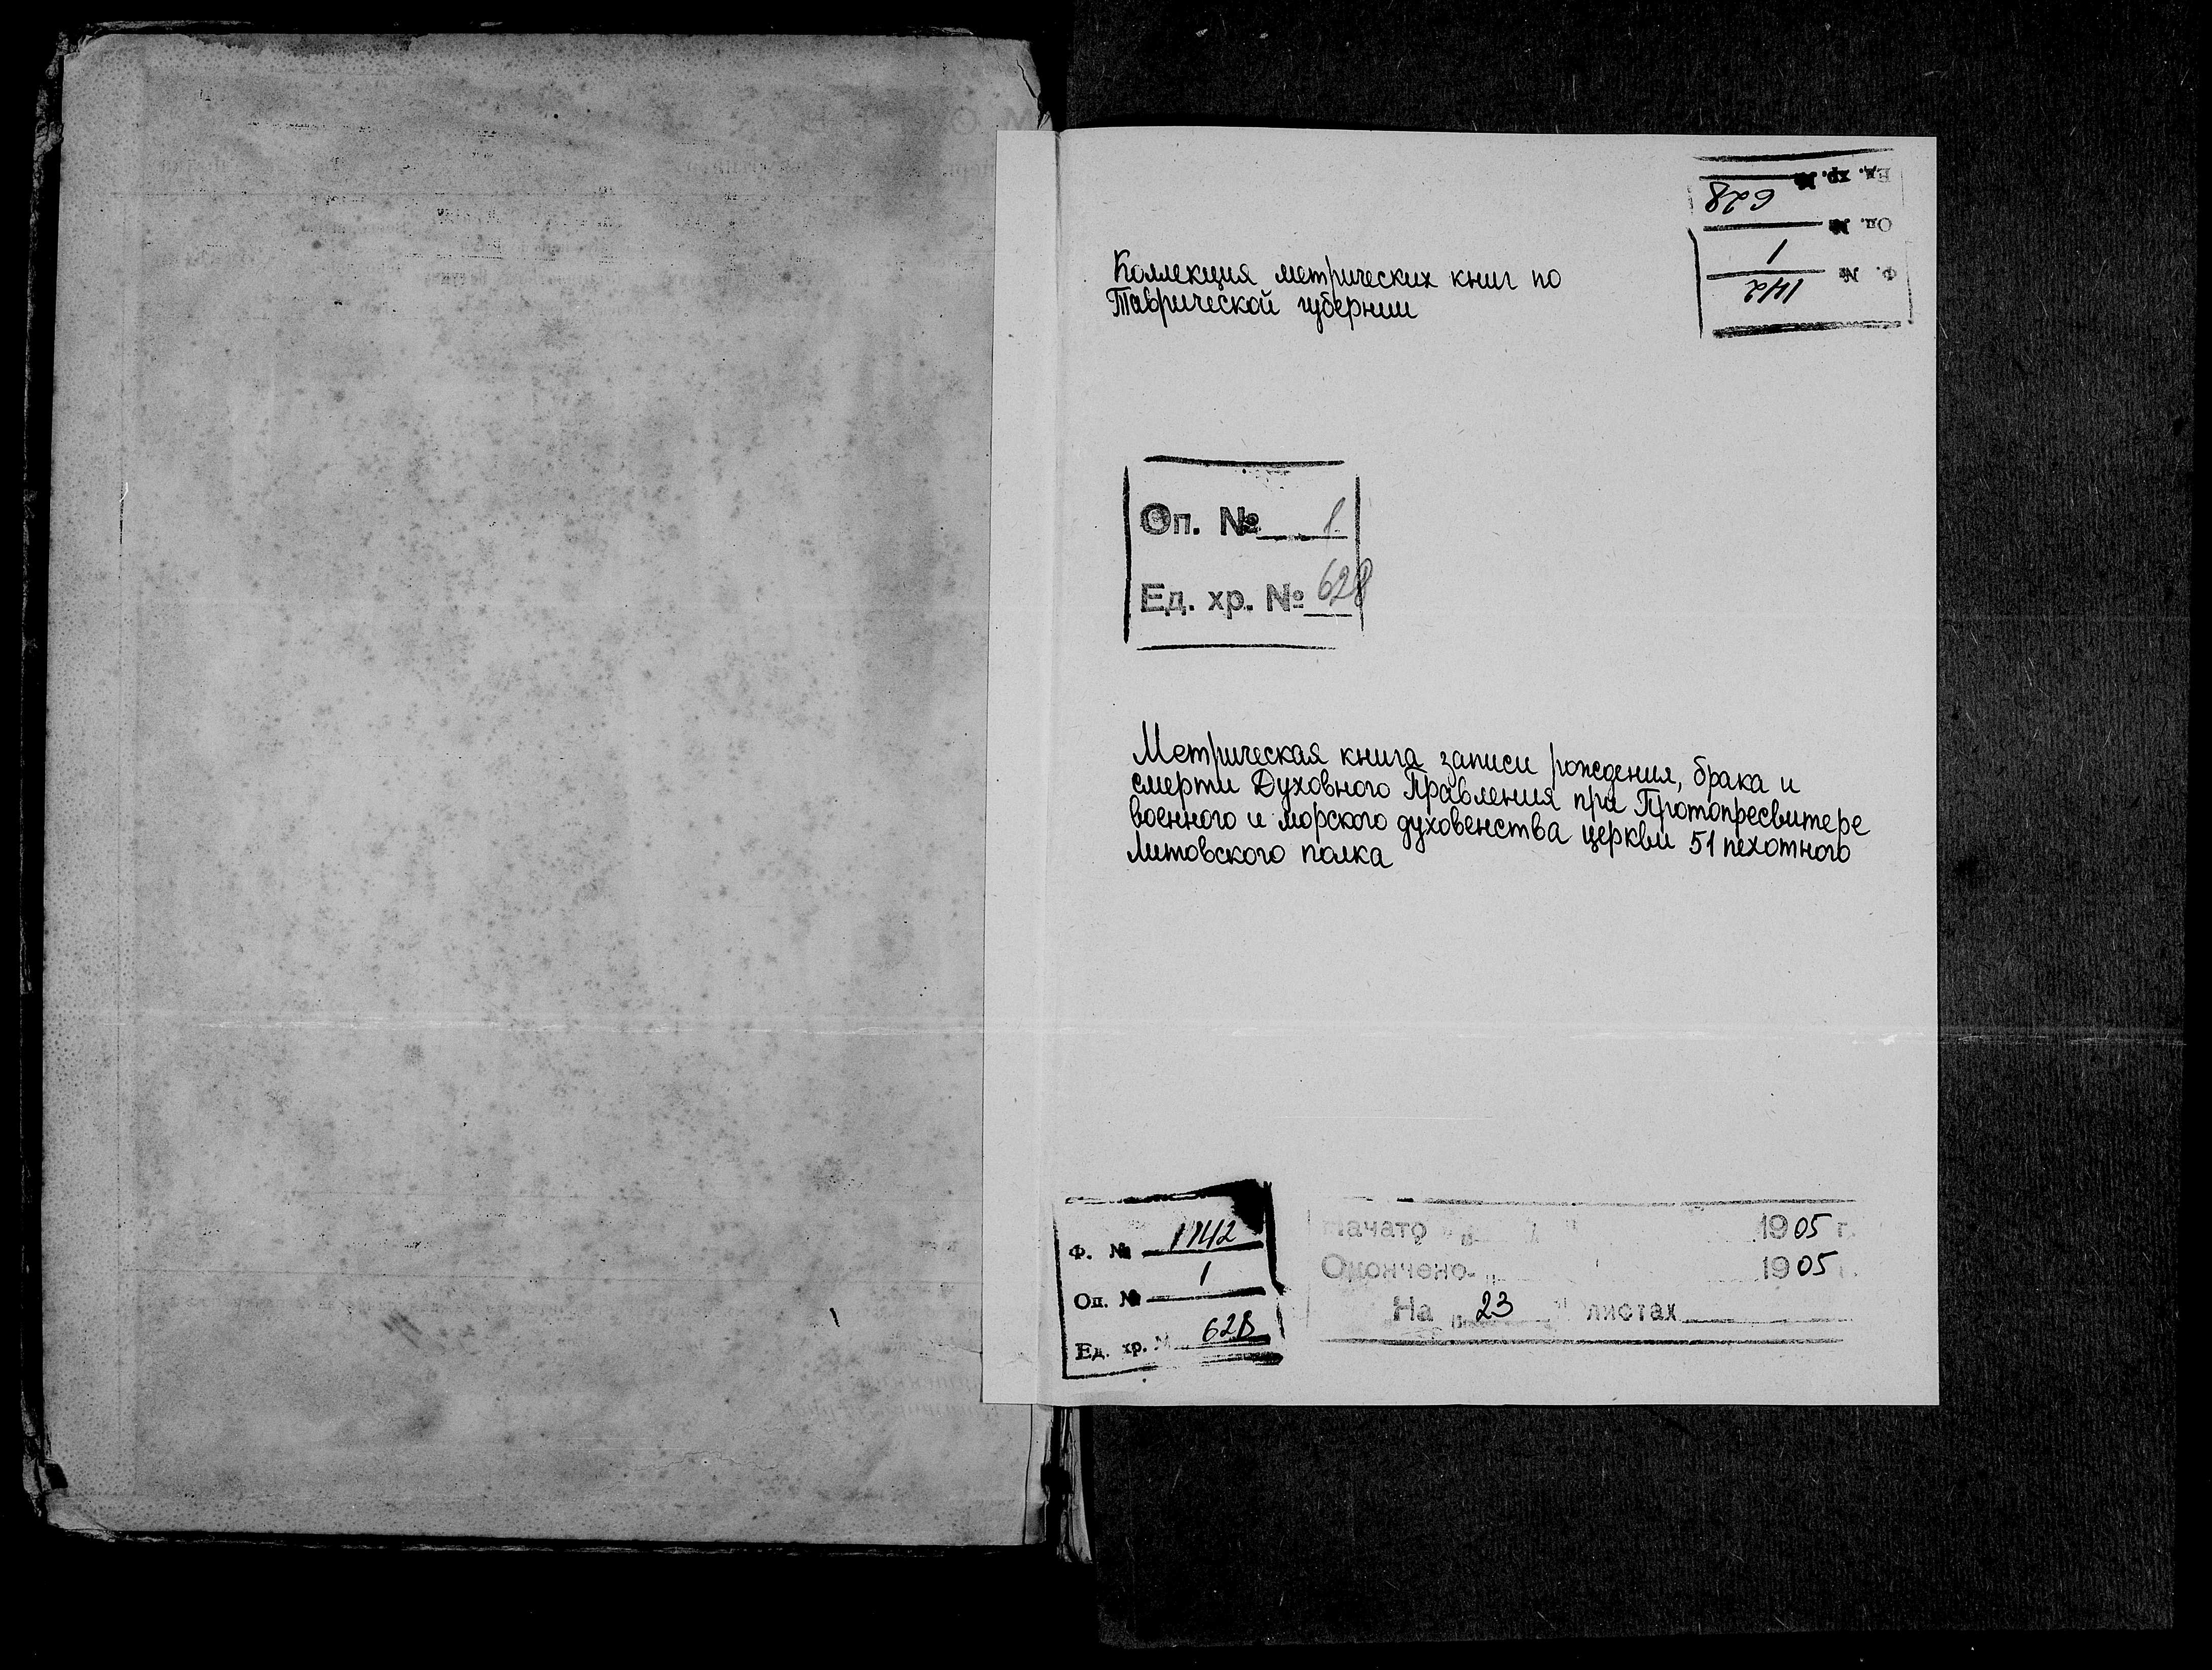 Ед. хр. № 628
Оп. № 1
Ф. № 1142
Коллекция метрических книг по
Таврической губернии
Оп. № 1
Ед. хр. № 628
Метрическая книга записи рождения, брака и
смерти Духовного Правления при Протопресвитере
военного и морского духовенства церкви 51 пехотного
Литовского полка
Ф. № 1142
Оп. № 1
Ед. хр. № 628
Начато 1905 г.
Окончено 1905 г.
На 23 листах